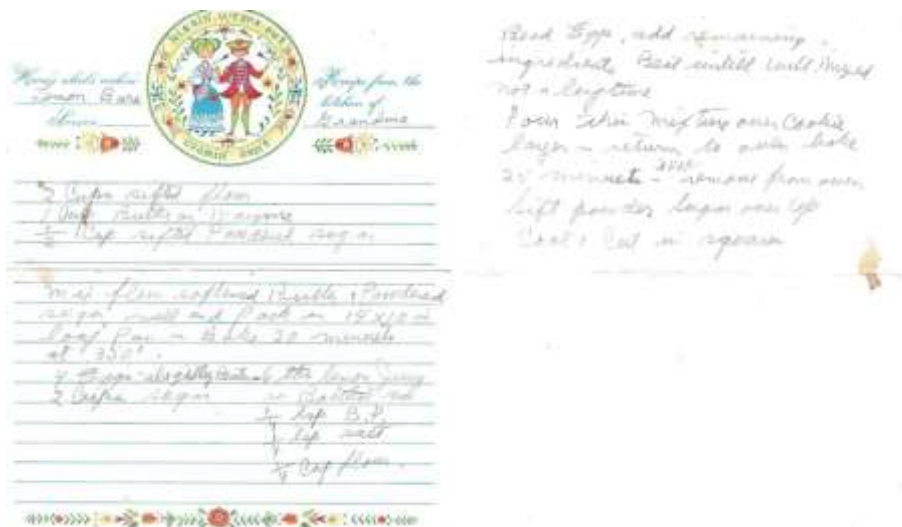 Here's what's cookin'
Lemon Bars
Serves
Recipe from the
kitchen of
Grandma
2 Cups sifted flour
1 Cup Butter
1/2 Cup sifted Powdered sugar
Mix flour softened Butter & Powdered
sugar well and Pack in
Pan - Bake 20 minutes
at 350°.
4 Eggs slightly Beaten 6 tbs lemon Juice
2 Cups sugar
tsp B.P.
tsp salt
1/4 Cup flour.
Eggs, add remaining
ingredients Beat until well Mixed
not a longtime
Pour Mixture over Cookie
layer - return to oven bake
25 - 350° remove from oven
Sift powder sugar over top
Cool & Cut in squares